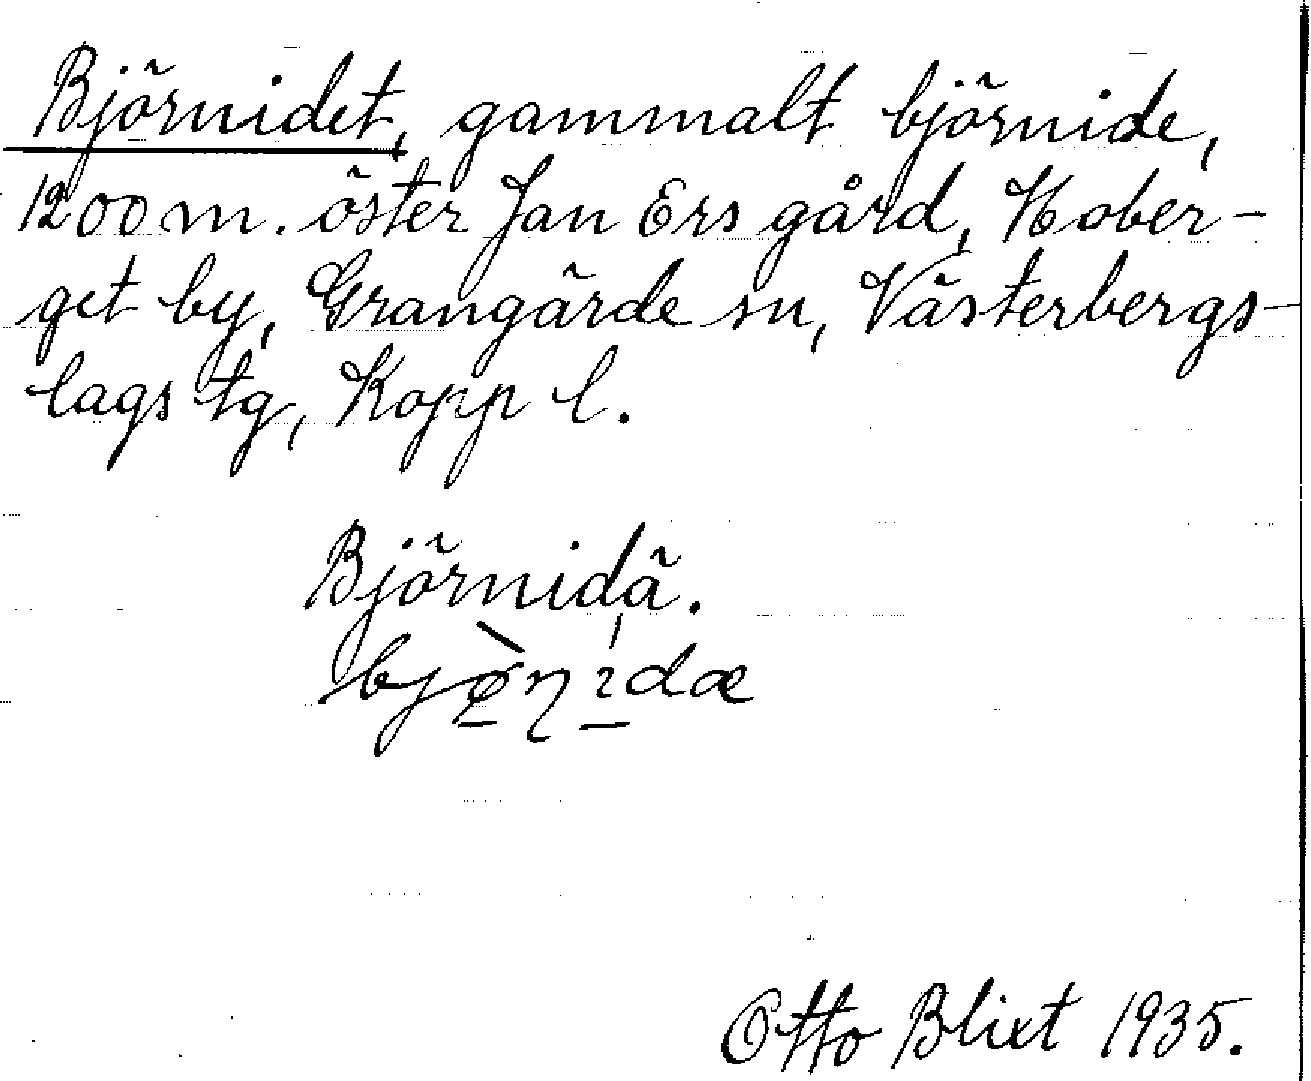 Björnidet, gammalt björnide,
1200 m. öster Jan Ers gård, Hober-
get by, Grangärde sn, Västerbergs-
lags tg, Kopp l.
Björnidä.
bjø̀ɳɩdæ
Otto Blixt 1935.